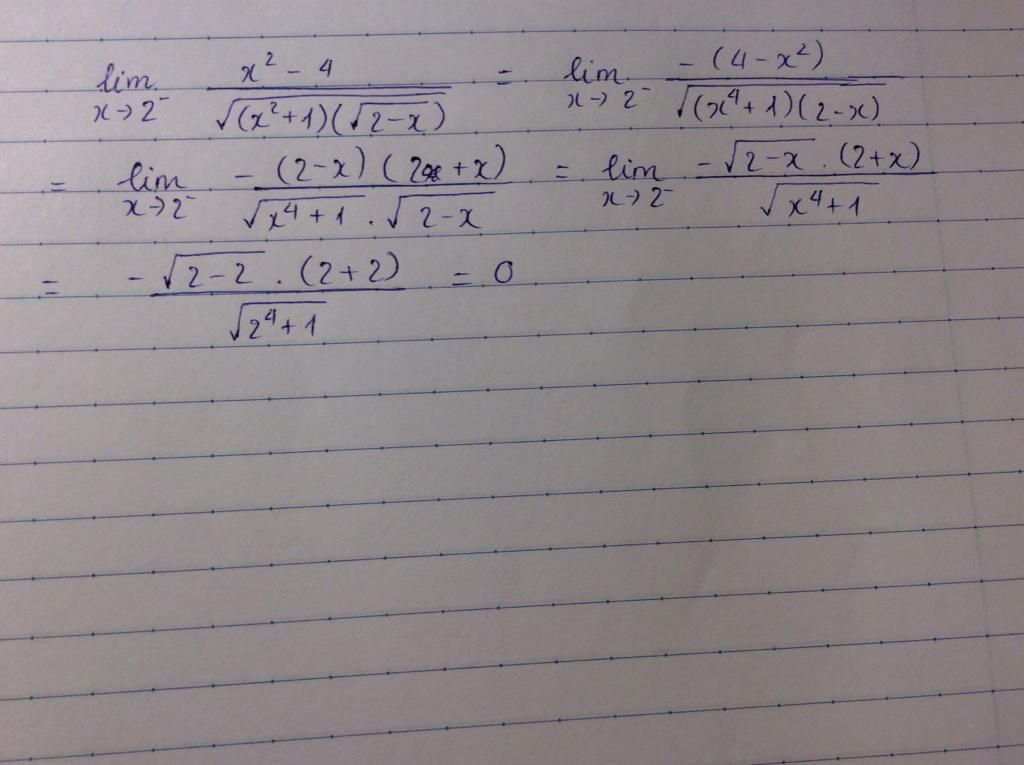 lim x→2⁻ (x² - 4)/(√((x²+1)(√(2-x)))) = lim x→2⁻ (-(4-x²))/(√((x⁴+1)(2-x)))
= lim x→2⁻ (-(2-x)(2+x))/(√(x⁴+1) . √(2-x)) = lim x→2⁻ (-√(2-x) . (2+x))/(√(x⁴+1))
= (-√(2-2) . (2+2))/(√(2⁴+1)) = 0